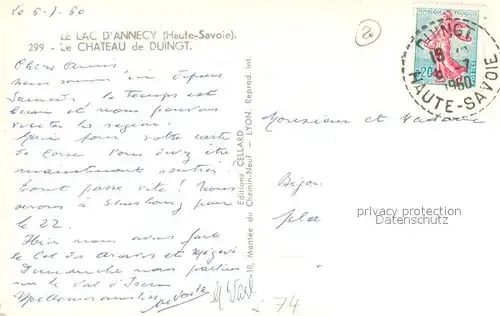 le 5-7-60
LE LAC D'ANNECY (Haute-Savoie).
299 - Le CHATEAU de DUINGT.
Chers Amis
nous sommes ici depuis
Samedi le temps est
beau et nous pouvons
visiter la région.
Merci pour votre carte
de Corse Vous devez être
maintenant rentrés!
Tout passe vite! Nous
serons à Strasbourg pour
le 22.
Hier nous avons fait
le Col des Aravis et Mégève
Dimanche nous partons
Val d'Isère
Editions CELLARD
10, Montée du Chemin-Neuf - LYON Reprod. Int.
2
DUINGT
18
1960
HAUTE-SAVOIE
0,20
POSTES
Monsieur et Madame
privacy protection
Datenschutz
74